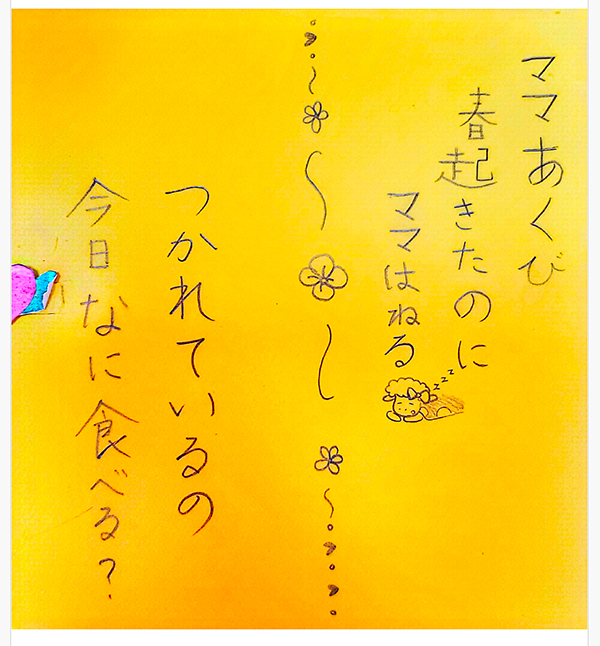 ママあくび
春起きたのに
ママはねる
zzz
つかれているの
今日なに食べる?